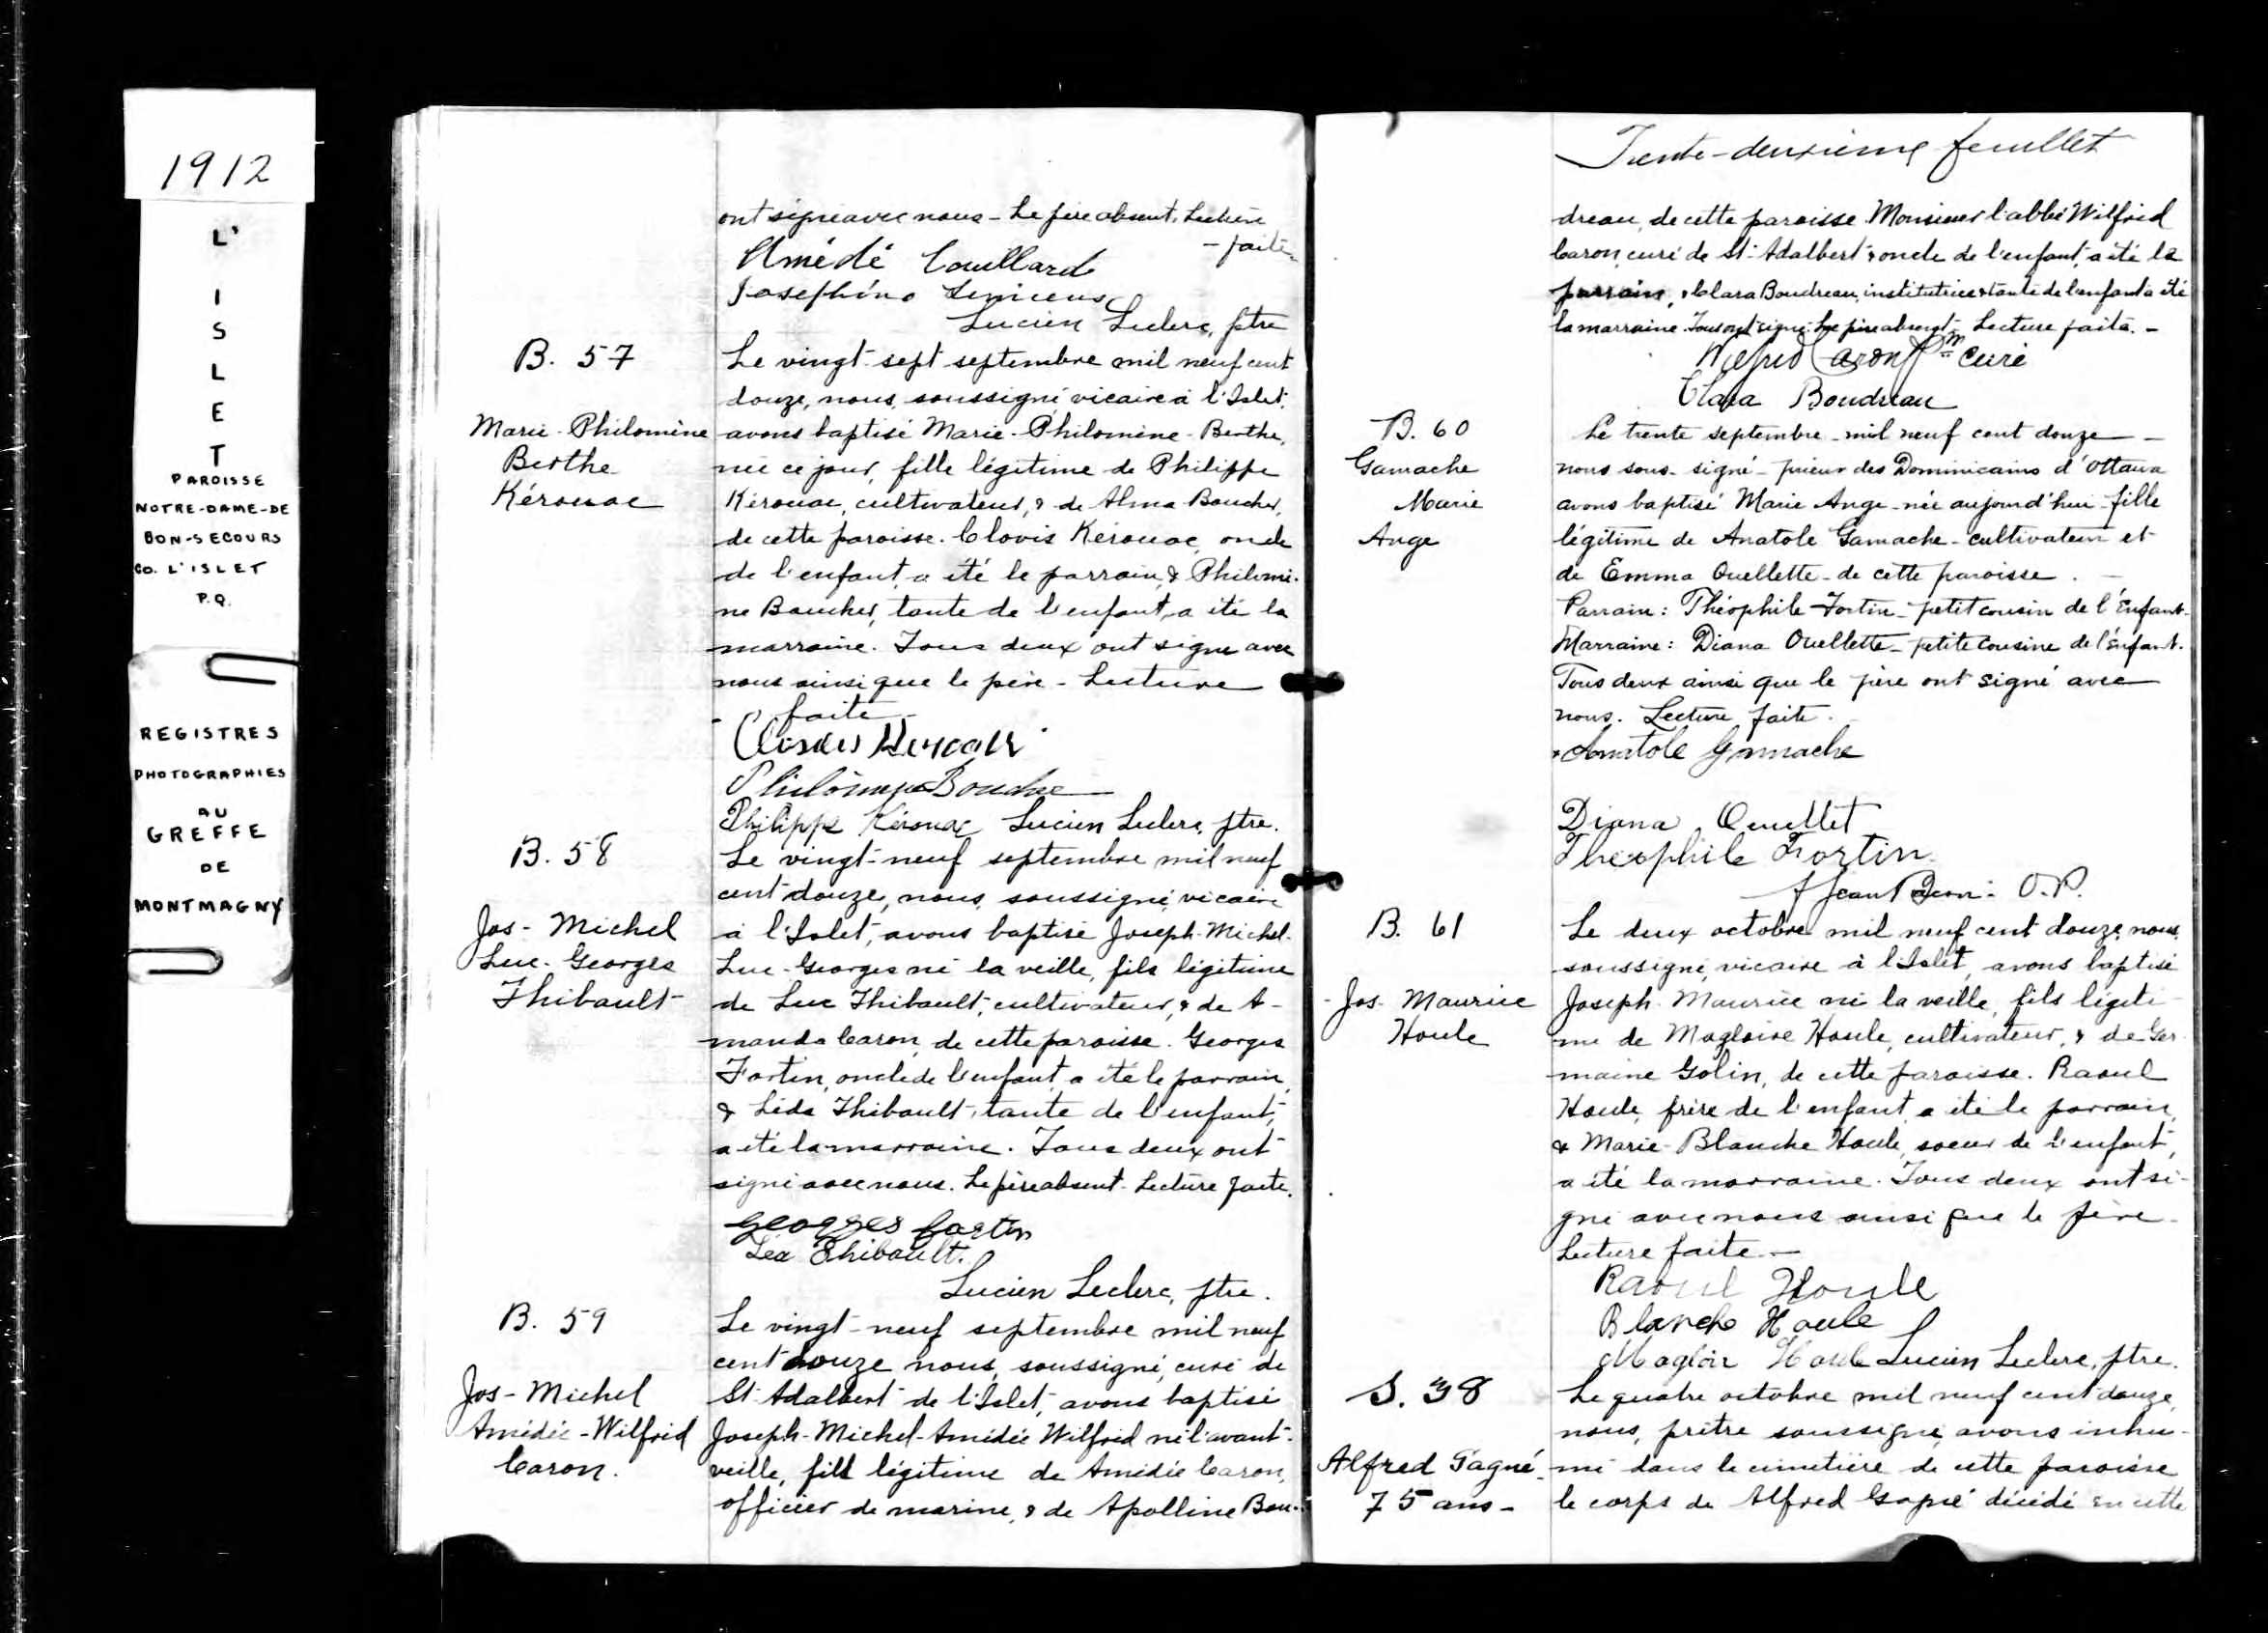 1912
L'
I
S
L
E
T
PAROISSE
NOTRE-DAME-DE
BON-SECOURS
CO. L'ISLET
P.Q.
REGISTRES
PHOTOGRAPHIES
AU
GREFFE
DE
MONTMAGNY
ont signé avec nous - Le père absent. Lecture
- faite.
Amédé Couillard
Josephine
Lucien Leclerc, ptre
B. 57
Marie-Philomène
Berthe
Kérouac
Le vingt-sept septembre mil neuf cent
douze, nous, soussigné, vicaire à l'Islet,
avons baptisé Marie-Philomène-Berthe,
née ce jour, fille légitime de Philippe
Kérouac, cultivateur, & de Alma Boucher,
de cette paroisse. Clovis Kérouac, oncle
de l'enfant, a été le parrain, & Philomè-
ne Boucher, tante de l'enfant, a été la
marraine. Tous deux ont signé avec
nous ainsi que le père - Lecture
faite -
Clovis Kerouac
Philomène Boucher
Philippe Kérouac Lucien Leclerc, ptre.
B. 58
Jos- Michel
Luc- Georges
Thibault
Le vingt-neuf septembre mil neuf
cent douze, nous, soussigné, vicaire
à l'Islet, avons baptisé Joseph-Michel-
Luc-Georges né la veille, fils légitime
de Luc Thibault, cultivateur, & de A-
manda Caron, de cette paroisse. Georges
Fortin, oncle de l'enfant, a été le parrain,
& Léda Thibault, tante de l'enfant,
a été la marraine. Tous deux ont
signé avec nous. Le père absent. Lecture faite.
Georges Fortin
Léa Thibault.
Lucien Leclerc, ptre.
B. 59
Jos- Michel
Amédée-Wilfrid
Caron.
Le vingt-neuf septembre mil neuf
cent douze nous, soussigné, curé de
St-Adalbert de l'Islet, avons baptisé
Joseph-Michel-Amédée Wilfrid né l'avant-
veille, fils légitime de Amédée Caron,
officier de marine, & de Apolline Bou-
Trente-deuxième feuillet
dreau, de cette paroisse. Monsieur l'abbé Wilfrid
Caron, curé de St-Adalbert & oncle de l'enfant, a été le
parrain, & Clara Boudreau, institutrice & tante de l'enfant a été
la marraine. Tous ont signé. Le père absent - Lecture faite. -
Wilfrid Caron Ptre Curé
Clara Boudreau
B. 60
Gamache
Marie
Ange
Le trente septembre - mil neuf cent douze -
nous sous-signé - prieur des Dominicains d'Ottawa
avons baptisé Marie Ange - née aujourd'hui - fille
légitime de Anatole Gamache - cultivateur et
de Emma Ouellette - de cette paroisse. -
Parrain: Théophile Fortin - petit cousin de l'Enfant.
Marraine: Diana Ouellette - petite cousine de l'Enfant.
Tous deux ainsi que le père ont signé avec
nous. Lecture faite.
Anatole Gamache
Diana Ouellet
Théophile Fortin
O.P.
B. 61
Jos- Maurice
Houle
Le deux octobre mil neuf cent douze, nous,
soussigné, vicaire à l'Islet, avons baptisé
Joseph-Maurice né la veille, fils légiti-
me de Magloire Houle, cultivateur, & de Ger-
maine Golin, de cette paroisse. Raoul
Houle, frère de l'enfant, a été le parrain,
& Marie-Blanche Houle, soeur de l'enfant,
a été la marraine. Tous deux ont si-
gné avec nous ainsi que le père -
Lecture faite. -
Raoul Houle
Blanche Houle
Magloir Houle Lucien Leclerc, ptre.
S. 38
Alfred Gagné -
75 ans -
Le quatre octobre mil neuf cent douze,
nous, prêtre soussigné, avons inhu-
mé dans le cimetière de cette paroisse
le corps de Alfred Gagné décédé en cette